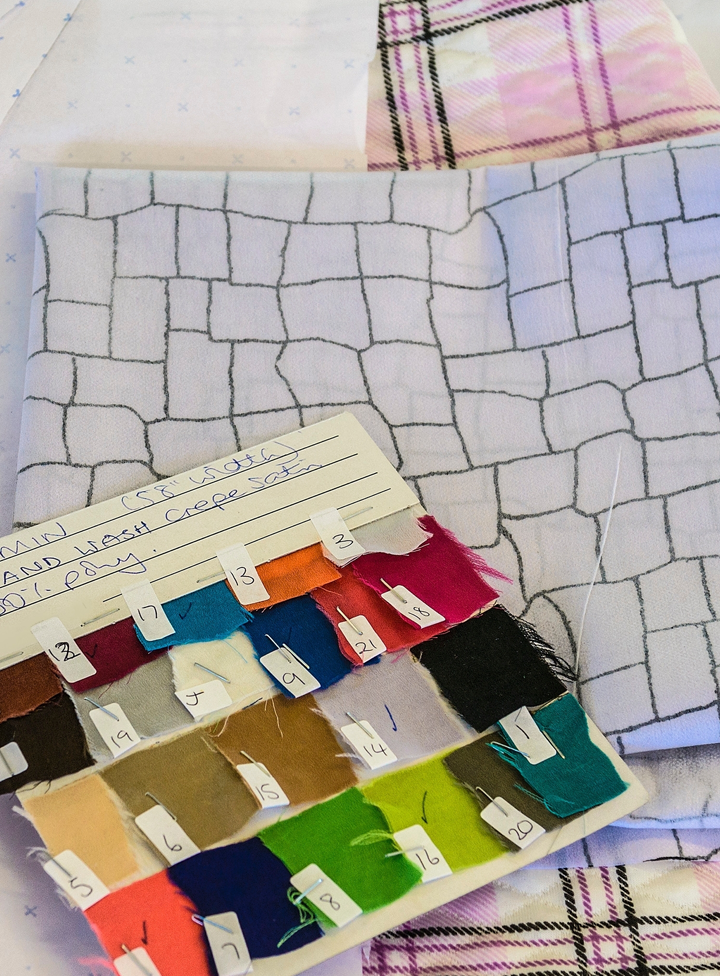 (58" width)
MIN
AND WASH crepe satin
00% poly.
3
13
18
17
21
12
9
19
14
1
15
6
20
16
5
8
7